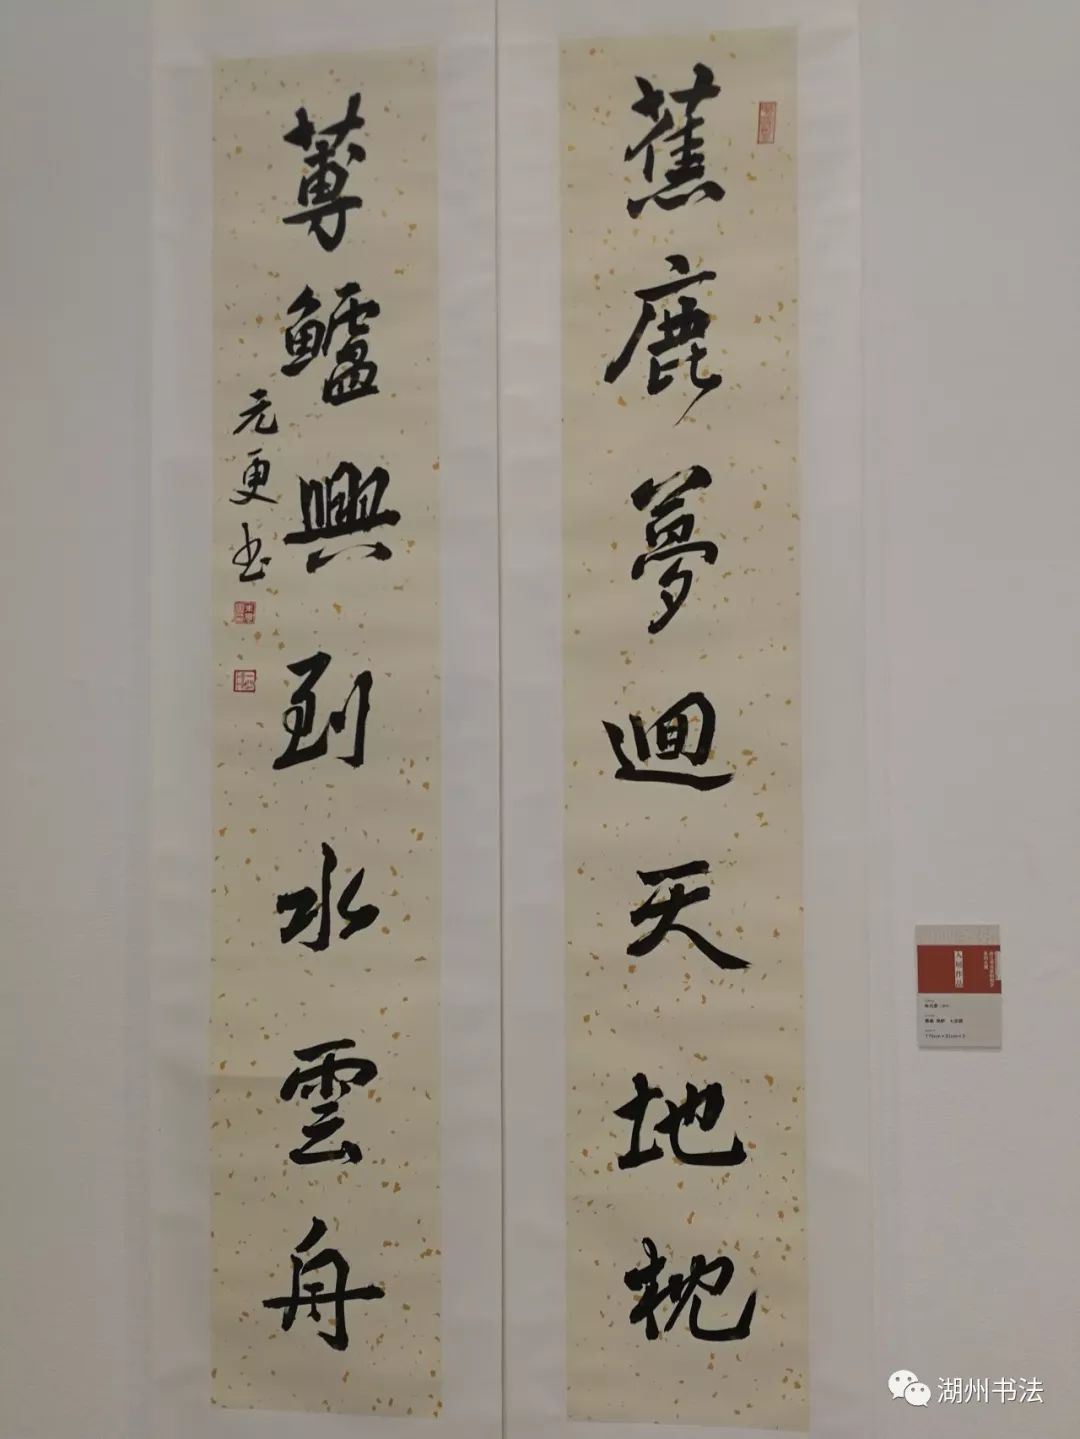 蕉鹿夢迴天地枕
蓴鱸興到水雲舟
元更书
入展作品
湖州书法